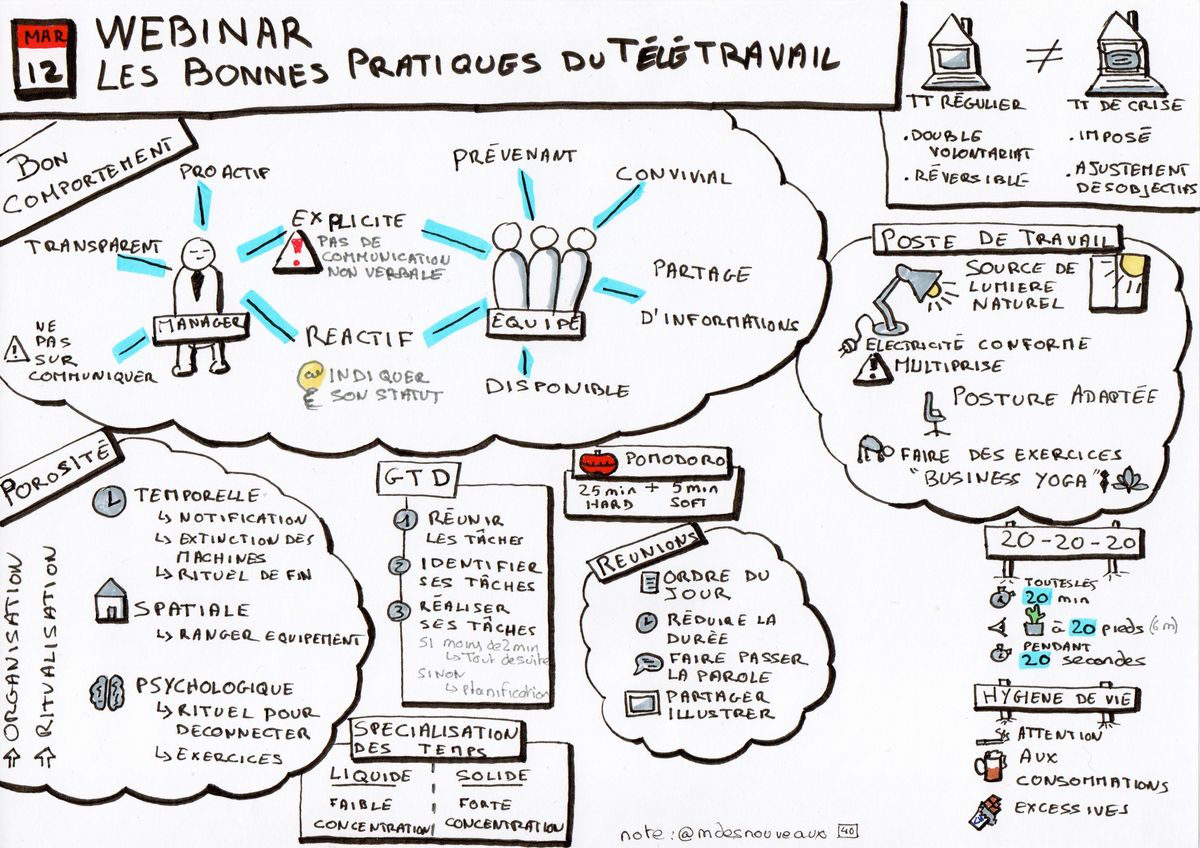 MAR
12
WEBINAR
LES BONNES PRATIQUES DU TÉLÉTRAVAIL
≠
TT RÉGULIER
.DOUBLE
VOLONTARIAT
.RÉVERSIBLE
TT DE CRISE
.IMPOSÉ
.AJUSTEMENT
DES OBJECTIFS
BON
COMPORTEMENT
PROACTIF
TRANSPARENT
MANAGER
⚠ NE
PAS
SUR
COMMUNIQUER
EXPLICITE
PAS DE
COMMUNICATION
NON VERBALE
REACTIF
INDIQUER
SON STATUT
PRÉVENANT
CONVIVIAL
EQUIPE
PARTAGE
D'INFORMATIONS
DISPONIBLE
POSTE DE TRAVAIL
SOURCE DE
LUMIERE
NATUREL
ELECTRICITÉ CONFORME
⚠ MULTIPRISE
POSTURE ADAPTÉE
FAIRE DES EXERCICES
"BUSINESS YOGA"
POROSITÉ
⇧ ORGANISATION
⇧ RITUALISATION
TEMPORELLE
↳ NOTIFICATION
↳ EXTINCTION DES
MACHINES
↳ RITUEL DE FIN
SPATIALE
↳ RANGER EQUIPEMENT
PSYCHOLOGIQUE
↳ RITUEL POUR
DECONNECTER
↳ EXERCICES
GTD
1 RÉUNIR
LES TÂCHES
2 IDENTIFIER
SES TÂCHES
3 RÉALISER
SES TÂCHES
SI moins de 2 min
↳ Tout de suite
SINON
↳ planification
POMODORO
25 min + 5 min
HARD SOFT
REUNIONS
ORDRE DU
JOUR
RÉDUIRE LA
DURÉE
FAIRE PASSER
LA PAROLE
PARTAGER
ILLUSTRER
SPECIALISATION
DES TEMPS
LIQUIDE
FAIBLE
CONCENTRATION
SOLIDE
FORTE
CONCENTRATION
20-20-20
TOUTES LES
20 min
à 20 pieds (6m)
PENDANT
20 secondes
HYGIENE DE VIE
ATTENTION
AUX
CONSOMMATIONS
EXCESSIVES
note : @mdesnouveaux 40